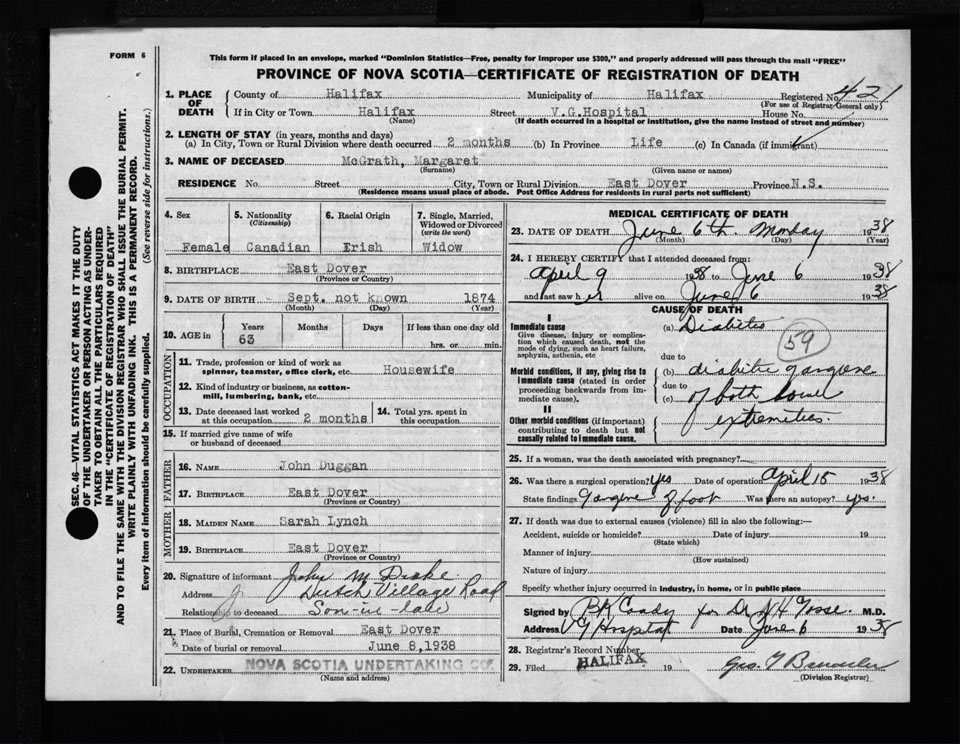 FORM 6
This form if placed in an envelope, marked "Dominion Statistics—Free, penalty for improper use $300," and properly addressed will pass through the mail "FREE"
PROVINCE OF NOVA SCOTIA—CERTIFICATE OF REGISTRATION OF DEATH
SEC. 46—VITAL STATISTICS ACT MAKES IT THE DUTY
OF THE UNDERTAKER OR PERSON ACTING AS UNDER-
TAKER TO OBTAIN ALL THE PARTICULARS REQUIRED
IN THE "CERTIFICATE OF REGISTRATION OF DEATH"
AND TO FILE THE SAME WITH THE DIVISION REGISTRAR WHO SHALL ISSUE THE BURIAL PERMIT.
WRITE PLAINLY WITH UNFADING INK. THIS IS A PERMANENT RECORD.
Every item of information should be carefully supplied. (See reverse side for instructions.)
1. PLACE OF DEATH
County of Halifax Municipality of Halifax Registered No. 421
(For use of Registrar General only)
If in City or Town Halifax Street V.G.Hospital House No.
(Name) (If death occurred in a hospital or institution, give the name instead of street and number)
2. LENGTH OF STAY (in years, months and days)
(a) In City, Town or Rural Division where death occurred 2 months (b) In Province Life (c) In Canada (if immigrant)
3. NAME OF DECEASED McGrath, Margaret
(Surname) (Given name or names)
RESIDENCE No. Street City, Town or Rural Division East Dover Province N.S.
(Residence means usual place of abode. Post Office Address for residents in rural parts not sufficient)
4. Sex
Female
5. Nationality
(Citizenship)
Canadian
6. Racial Origin
Erish
7. Single, Married,
Widowed or Divorced
(write the word)
Widow
8. BIRTHPLACE East Dover
(Province or Country)
9. DATE OF BIRTH Sept. not known 1874
(Month) (Day) (Year)
10. AGE in
Years Months Days If less than one day old
63 hrs. or min.
OCCUPATION
11. Trade, profession or kind of work as
spinner, teamster, office clerk, etc. Housewife
12. Kind of industry or business, as cotton-
mill, lumbering, bank, etc.
13. Date deceased last worked
at this occupation 2 months
14. Total yrs. spent in
this occupation
15. If married give name of wife
or husband of deceased
FATHER
16. NAME John Duggan
17. BIRTHPLACE East Dover
(Province or Country)
MOTHER
18. MAIDEN NAME Sarah Lynch
19. BIRTHPLACE East Dover
(Province or Country)
20. Signature of informant John M Drake
Address Dutch Village Road
Relationship to deceased Son-in-law
21. Place of Burial, Cremation or Removal East Dover
Date of burial or removal June 8,1938
22. UNDERTAKER NOVA SCOTIA UNDERTAKING CO.
(Name and address)
MEDICAL CERTIFICATE OF DEATH
23. DATE OF DEATH June 6th. Monday 1938
(Month) (Day) (Year)
24. I HEREBY CERTIFY that I attended deceased from:
April 9 1938 to June 6 1938
and last saw her alive on June 6 1938
CAUSE OF DEATH
I
Immediate cause
Give disease, injury or complica-
tion which caused death, not the
mode of dying, such as heart failure,
asphyxia, asthenia, etc
(a) Diabetes
59
due to
Morbid conditions, if any, giving rise to
immediate cause (stated in order
proceeding backwards from im-
mediate cause).
(b) diabetic gangrene
due to
(c) of both lower
extremities.
II
Other morbid conditions (if important)
contributing to death but not
causally related to immediate cause.
25. If a woman, was the death associated with pregnancy?
26. Was there a surgical operation? yes Date of operation April 15 1938
State findings Gangrene of foot Was there an autopsy? yes.
27. If death was due to external causes (violence) fill in also the following:—
Accident, suicide or homicide? Date of injury 19
(State which)
Manner of injury
(How sustained)
Nature of injury
Specify whether injury occurred in industry, in home, or in public place
Signed by for Dr M.D.
Address V G Hospital Date June 6 1938
28. Registrar's Record Number
29. Filed HALIFAX 19
(Division Registrar)